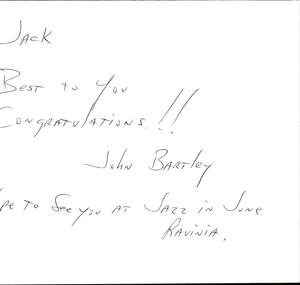 Jack
Best to You
Congratulations!!
John Bartley
pe to See you at Jazz in June
Ravinia.